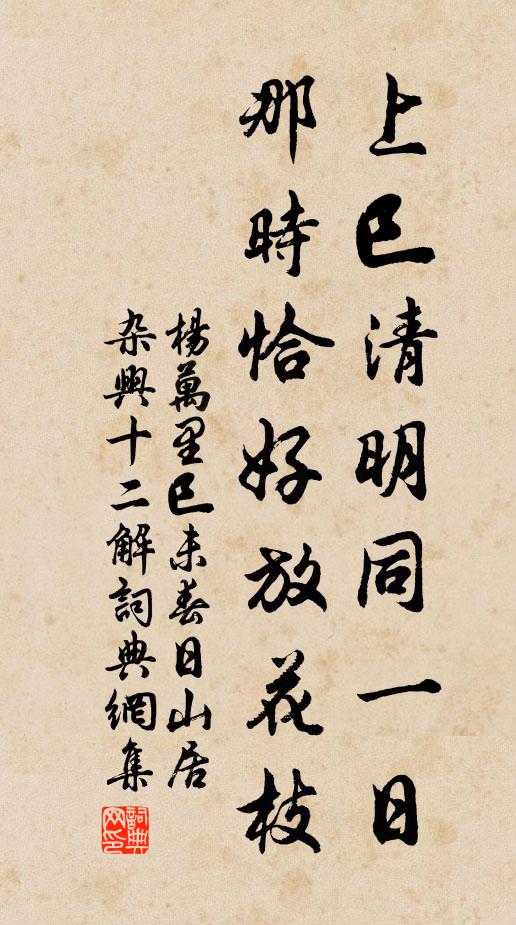 上巳清明同一日
那時恰好放花枝
楊萬里巳未春日山居
杂興十二解詞典網集
詞典网印